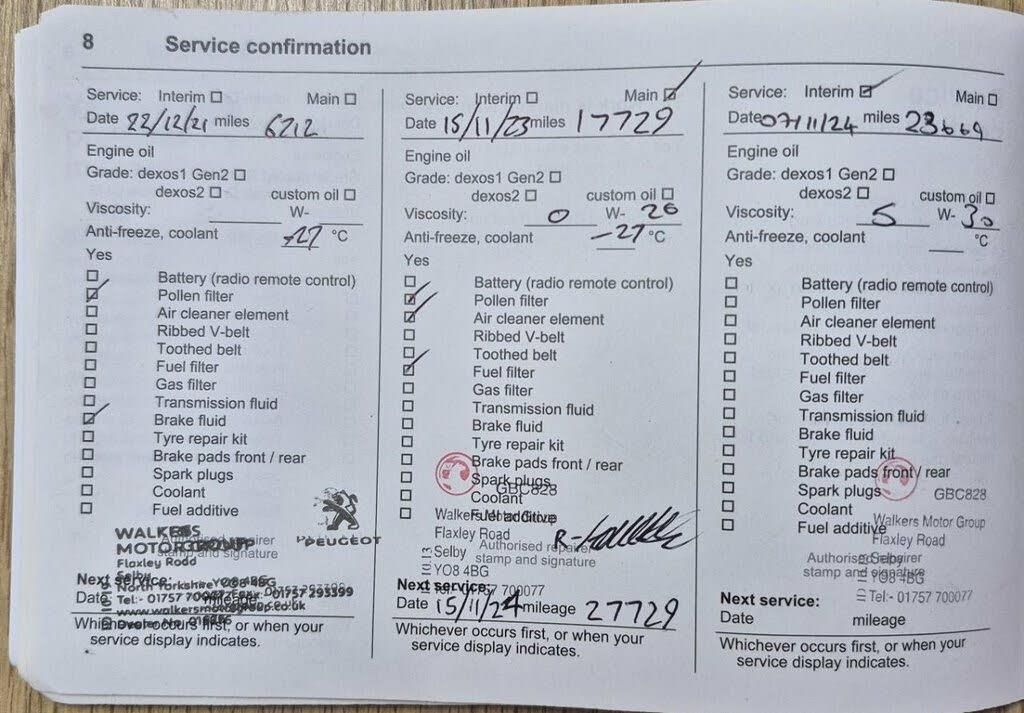 8 Service confirmation
Service: Interim ☐ Main ☐
Date 22/12/21 miles 6212
Engine oil
Grade: dexos1 Gen2 ☐
dexos2 ☐ custom oil ☐
Viscosity: W-
Anti-freeze, coolant -27 °C
Yes
☐ Battery (radio remote control)
☑ Pollen filter
☐ Air cleaner element
☐ Ribbed V-belt
☐ Toothed belt
☐ Fuel filter
☐ Gas filter
☐ Transmission fluid
☑ Brake fluid
☐ Tyre repair kit
☐ Brake pads front / rear
☐ Spark plugs
☐ Coolant
☐ Fuel additive
PEUGEOT
WALKERS
MOTOR GROUP
Flaxley Road
Selby
North Yorkshire YO8 4BG
www.walkersmotorgroup.co.uk
Authorised repairer
stamp and signature
Next service:
Date mileage
Whichever occurs first, or when your
service display indicates.
Service: Interim ☐ Main ☑
Date 15/11/23 miles 17729
Engine oil
Grade: dexos1 Gen2 ☐
dexos2 ☐ custom oil ☐
Viscosity: 0 W- 20
Anti-freeze, coolant -27 °C
Yes
☐ Battery (radio remote control)
☑ Pollen filter
☑ Air cleaner element
☐ Ribbed V-belt
☐ Toothed belt
☑ Fuel filter
☐ Gas filter
☐ Transmission fluid
☐ Brake fluid
☐ Tyre repair kit
☐ Brake pads front / rear
☐ Spark plugs
☐ Coolant
☐ Fuel additive
GBC828
Walkers Motor Group
Flaxley Road
Selby
YO8 4BG
Tel:- 01757 700077
Authorised repairer
stamp and signature
Next service:
Date 15/11/24 mileage 27729
Whichever occurs first, or when your
service display indicates.
Service: Interim ☑ Main ☐
Date 07/11/24 miles 23669
Engine oil
Grade: dexos1 Gen2 ☐
dexos2 ☐ custom oil ☐
Viscosity: 5 W- 30
Anti-freeze, coolant °C
Yes
☐ Battery (radio remote control)
☐ Pollen filter
☐ Air cleaner element
☐ Ribbed V-belt
☐ Toothed belt
☐ Fuel filter
☐ Gas filter
☐ Transmission fluid
☐ Brake fluid
☐ Tyre repair kit
☐ Brake pads front / rear
☐ Spark plugs
☐ Coolant
☐ Fuel additive
GBC828
Walkers Motor Group
Flaxley Road
Selby
YO8 4BG
Tel:- 01757 700077
Authorised repairer
stamp and signature
Next service:
Date mileage
Whichever occurs first, or when your
service display indicates.